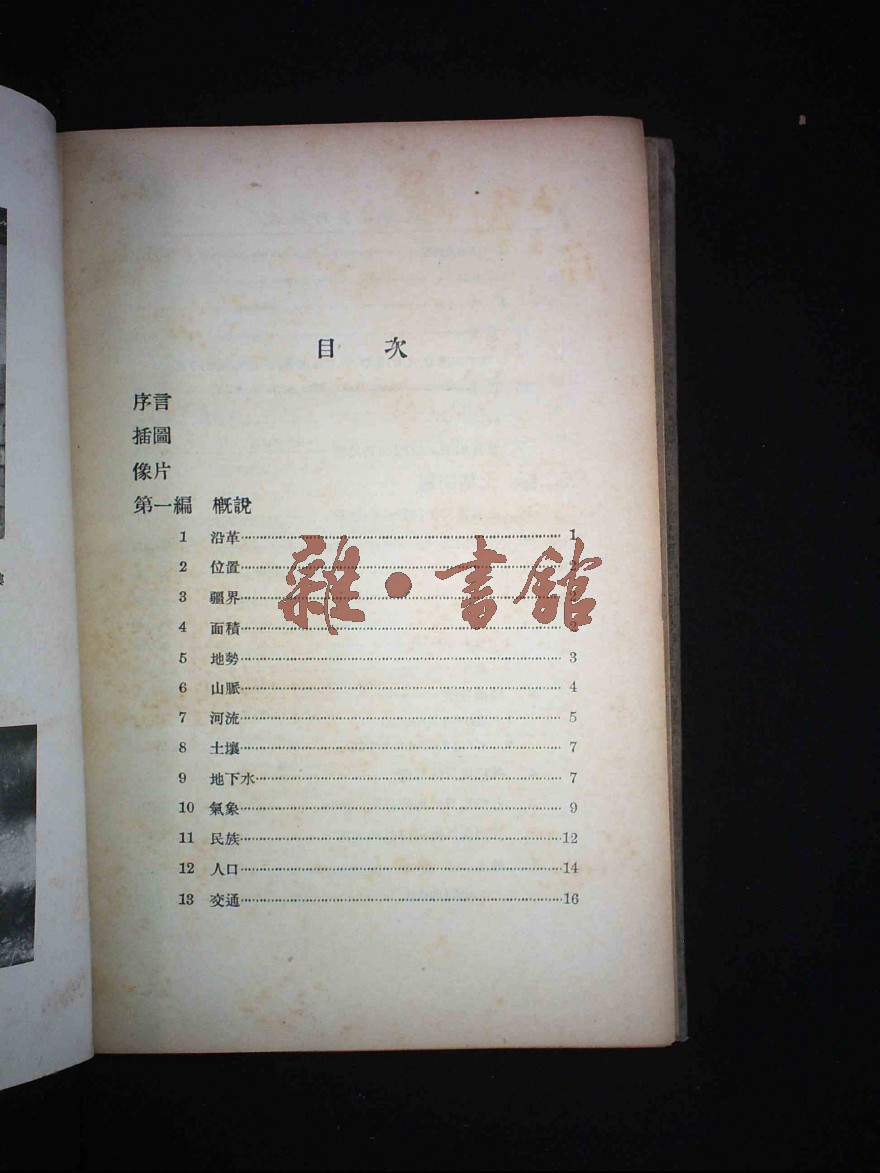 目 次
序言
插圖
像片
第一編 概說
1 沿革 1
2 位置 2
3 疆界
4 面積 2
5 地勢 3
6 山脈 4
7 河流 5
8 土壤 7
9 地下水 7
10 氣象 9
11 民族 12
12 人口 14
13 交通 16
雜·書館